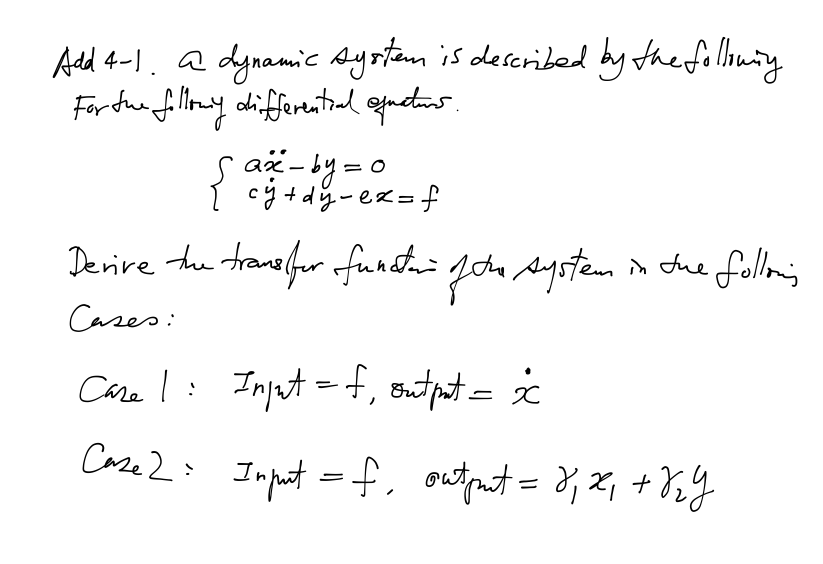 Add 4-1. a dynamic system is described by the following
For the following differential equations.
{ aẍ - by = 0
cẏ + dy - ex = f
Derive the transfer function of the system in the following
Cases:
Case 1: Input = f, output = ẋ
Case 2: Input = f, output = γ₁x₁ + γ₂y